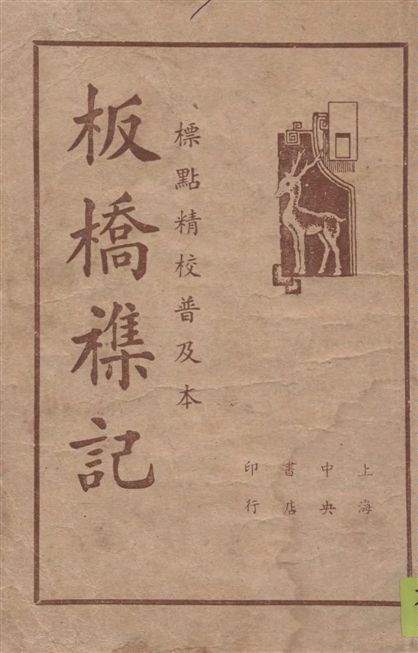 上海
中央
書店
印行
標點精校普及本
板橋襍記